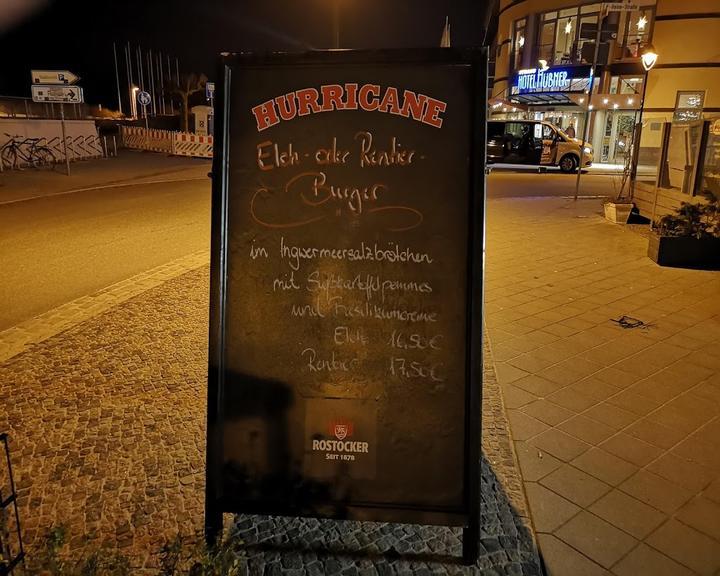 HURRICANE
Elch- oder Rentier-
Burger
im Ingwermeersalzbrötchen
mit Süßkartoffelpommes
und Basilikumcreme
Elch 16,50€
Rentier 17,50€
ROSTOCKER
SEIT 1878
HOTEL HÜBNER